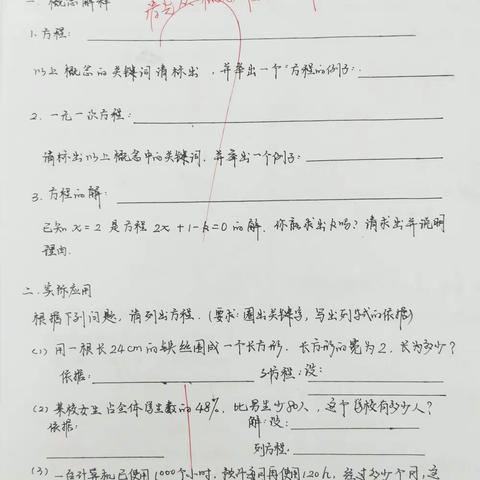 一 概念解释
1. 方程:
以上概念的关键词请标出,并举出一个"方程的例子:
2. 一元一次方程:
请标出以上概念中的关键词,并举出一个例子:
3. 方程的解:
已知 x=2 是方程 2x+1-k=0 的解,你能求出k吗?请求出并说明
理由.
二. 实际应用
根据下列问题,请列出方程.(要求:圈出关键字,写出列式的依据)
(1) 用一根长24cm的铁丝围成一个长方形.长方形的宽为2,长为多少?
依据: 列方程:设:
(2) 某校女生占全体学生数的48%,比男生少80人,这个学校有多少人?
依据: 解:设:
列方程:
(3) 一台计算机已使用1000个小时,预计每月再使用120h,经过多少个月,这